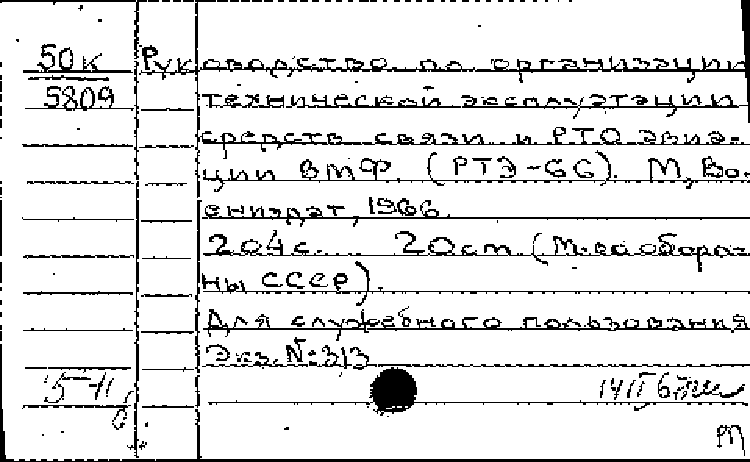 50к Руководство по организации
5809 технической эксплуатации
средств связи и РТО авиа-
ции ВМФ. (РТЭ-66). М, Во-
ениздат, 1966.
204с. 20см. (М-во оборо-
ны СССР).
Для служебного пользования
Экз. №313
5-11
М